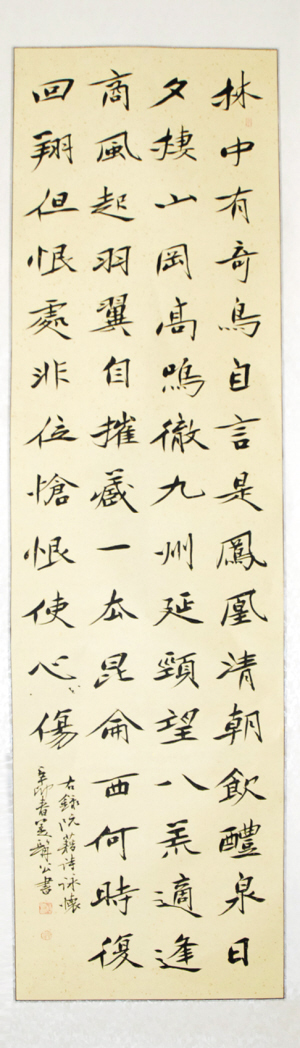 林中有奇鳥自言是鳳凰清朝飲醴泉日
夕棲山岡高鳴徹九州延頸望八荒適逢
商風起羽翼自摧藏一去昆侖西何時復
回翔但恨處非位愴恨使心傷
右録阮籍詩詠懷
辛卯春美髯公書